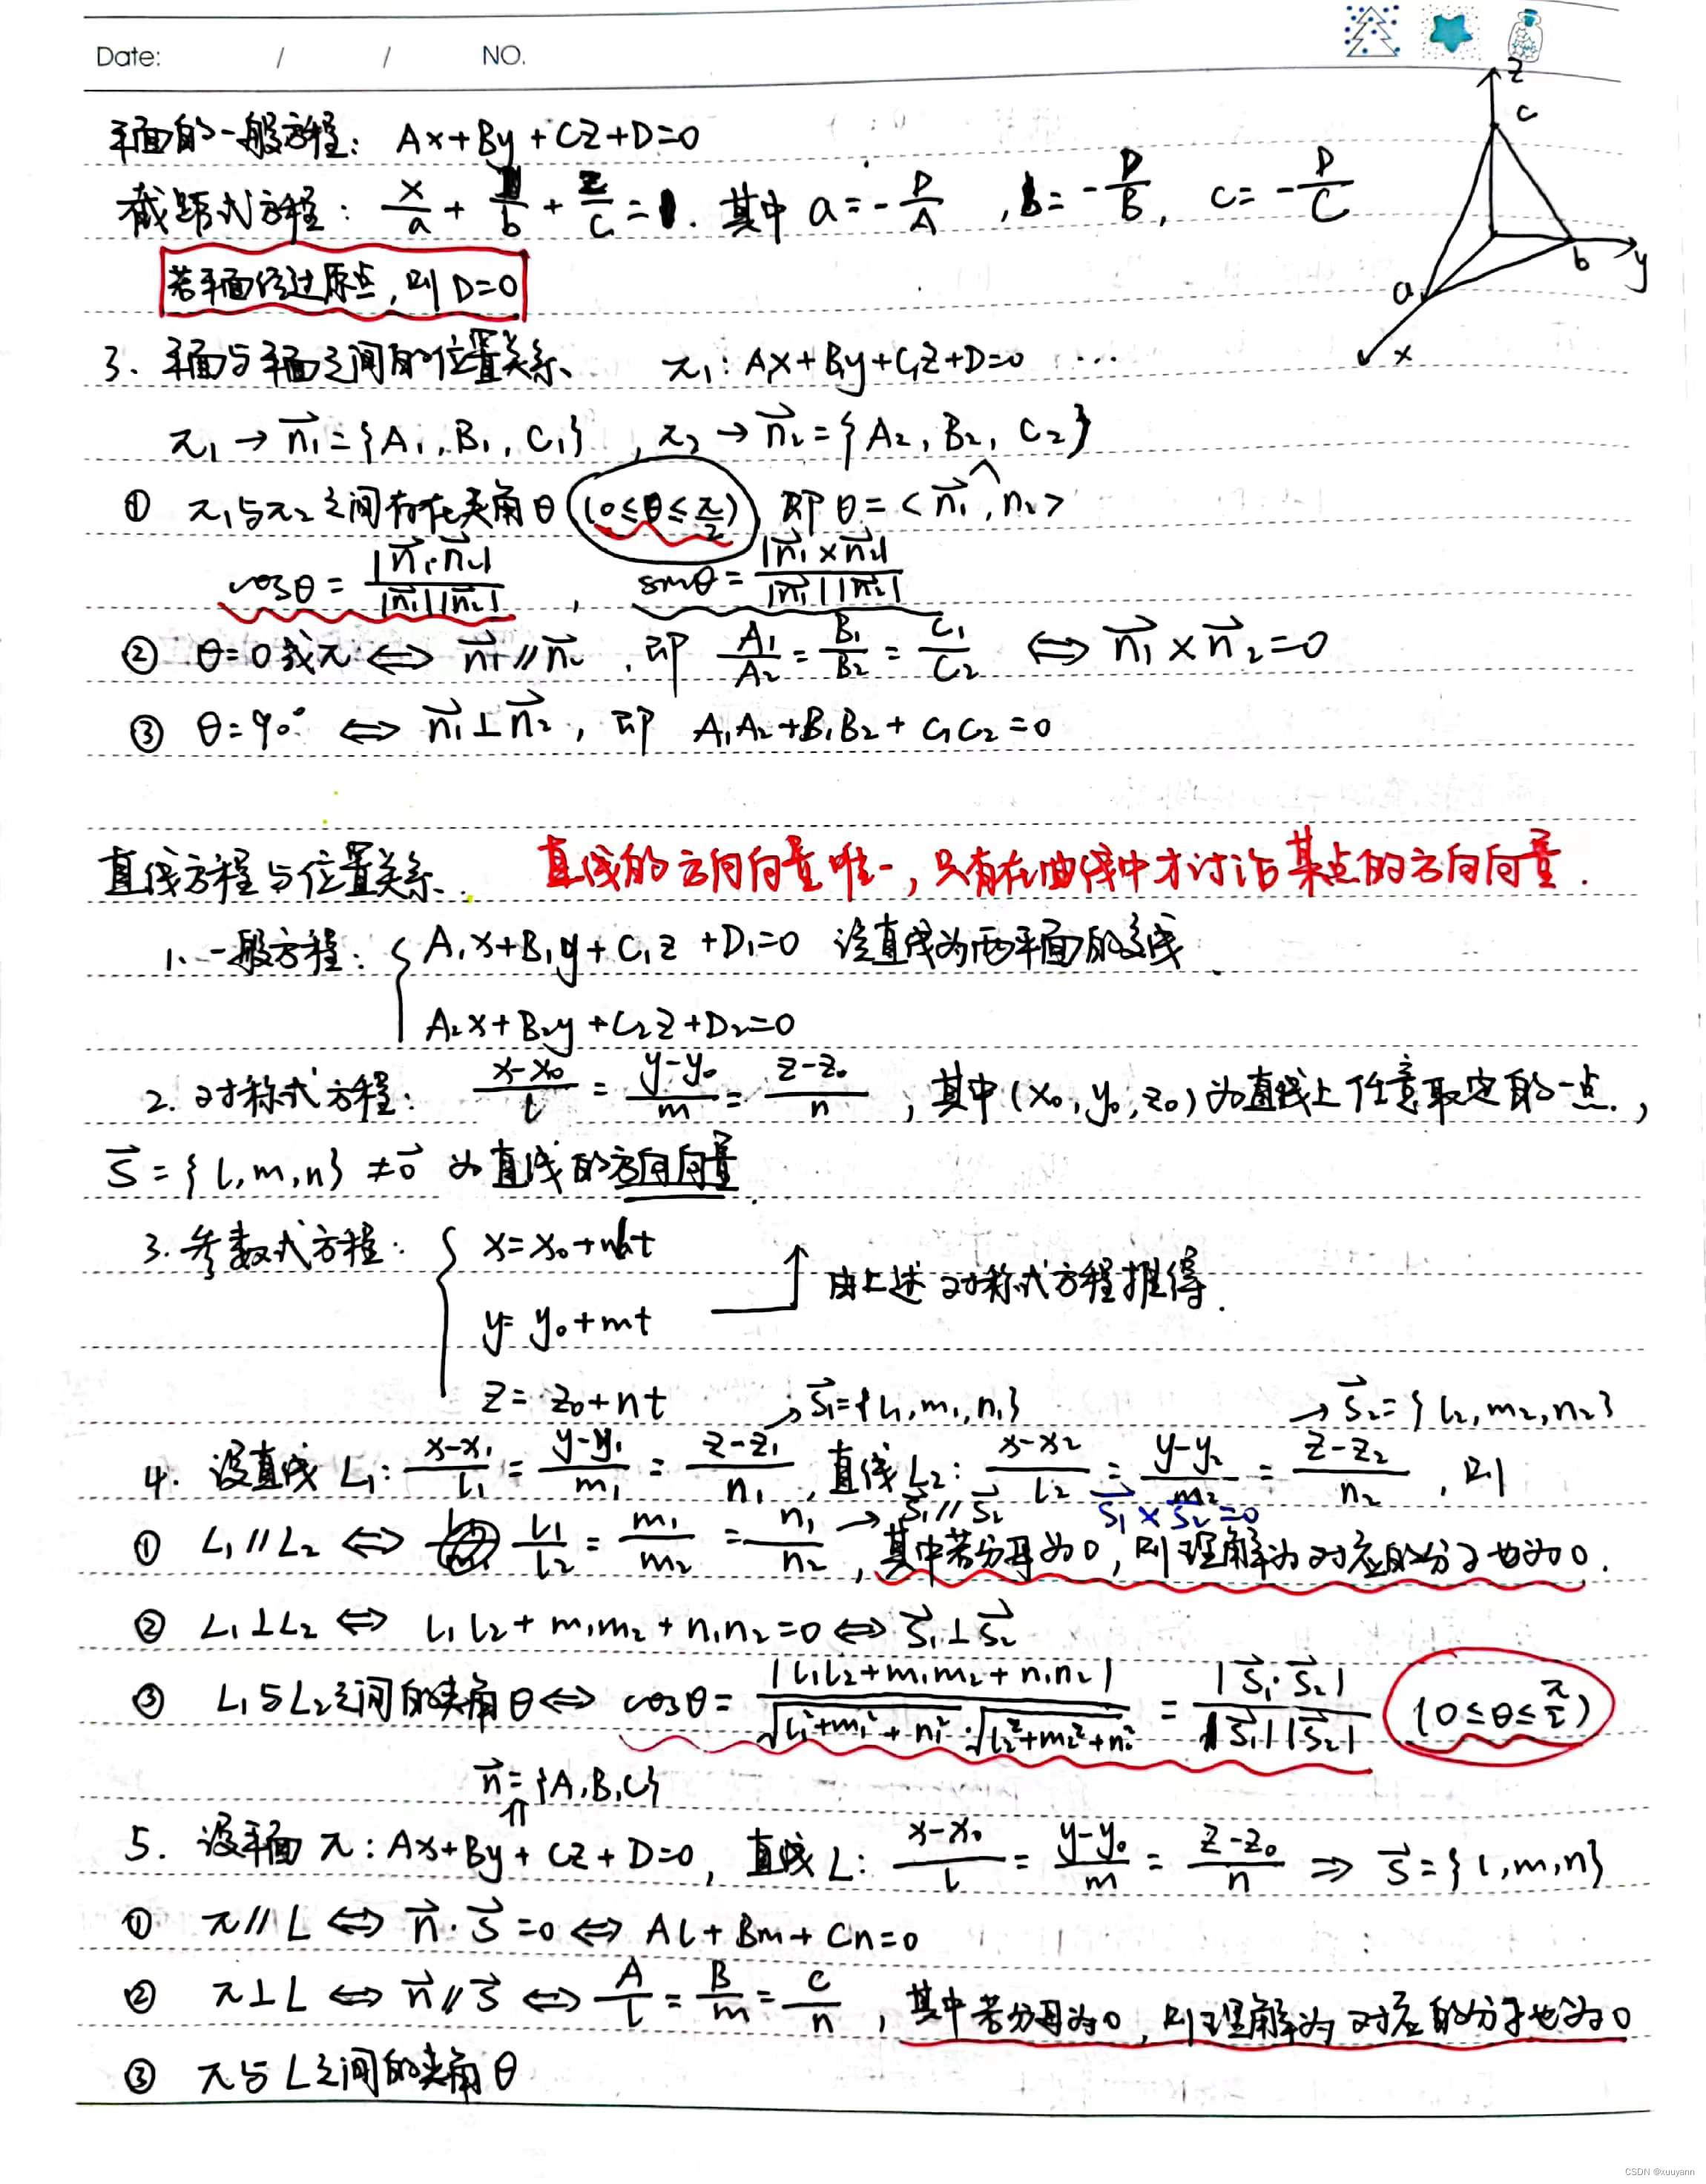 Date: / / NO.
平面的一般方程: Ax+By+Cz+D=0
截距式方程: x/a + y/b + z/c = 1. 其中 a=-D/A , b=-D/B, c=-D/C
若平面经过原点,则 D=0
z
c
a
b
y
x
3. 平面与平面之间的位置关系、 π₁: A₁x+B₁y+C₁z+D=0 ...
π₁→n₁={A₁,B₁,C₁} , π₂→n₂={A₂,B₂,C₂}
① π₁与π₂之间存在夹角θ (0≤θ≤π/2) 即θ=<n₁^,n₂>
cosθ=|n₁·n₂|/|n₁||n₂| , sinθ=|n₁×n₂|/|n₁||n₂|
② θ=0或π ⟺ n₁∥n₂ ,即 A₁/A₂=B₁/B₂=C₁/C₂ ⟺ n₁×n₂=0
③ θ=90° ⟺ n₁⊥n₂, 即 A₁A₂+B₁B₂+C₁C₂=0
直线方程与位置关系. 直线的方向向量唯一,只有在曲线中才讨论某点的方向向量.
1. 一般方程: { A₁x+B₁y+C₁z+D₁=0 设直线为两平面的交线.
A₂x+B₂y+C₂z+D₂=0
2. 对称式方程: x-x₀/l = y-y₀/m = z-z₀/n ,其中(x₀,y₀,z₀)为直线上任意取定的一点,
s={l,m,n}≠0 为直线的方向向量.
3. 参数式方程: { x=x₀+lt
y=y₀+mt 由上述对称式方程推得.
z=z₀+nt →s₁={l₁,m₁,n₁} →s₂={l₂,m₂,n₂}
4. 设直线L₁: x-x₁/l₁ = y-y₁/m₁ = z-z₁/n₁,直线L₂: x-x₂/l₂ = y-y₂/m₂ = z-z₂/n₂ ,则
s₁∥s₂ s₁×s₂=0
① L₁∥L₂ ⟺ l₁/l₂=m₁/m₂=n₁/n₂ → ,其中若分母为0,则理解为对应的分子也为0.
② L₁⊥L₂ ⟺ l₁l₂+m₁m₂+n₁n₂=0 ⟺ s₁⊥s₂
③ L₁与L₂之间的夹角θ ⟺ cosθ=|l₁l₂+m₁m₂+n₁n₂|/√l₁²+m₁²+n₁²·√l₂²+m₂²+n₂² = |s₁·s₂|/|s₁||s₂| (0≤θ≤π/2)
n={A,B,C}
⇑
5. 设平面π: Ax+By+Cz+D=0, 直线L: x-x₀/l = y-y₀/m = z-z₀/n ⇒ s={l,m,n}
① π∥L ⟺ n·s=0 ⟺ Al+Bm+Cn=0
② π⊥L ⟺ n∥s ⟺ A/l=B/m=C/n ,其中若分母为0,则理解为对应的分子也为0
③ π与L之间的夹角θ
CSDN @xuuyann